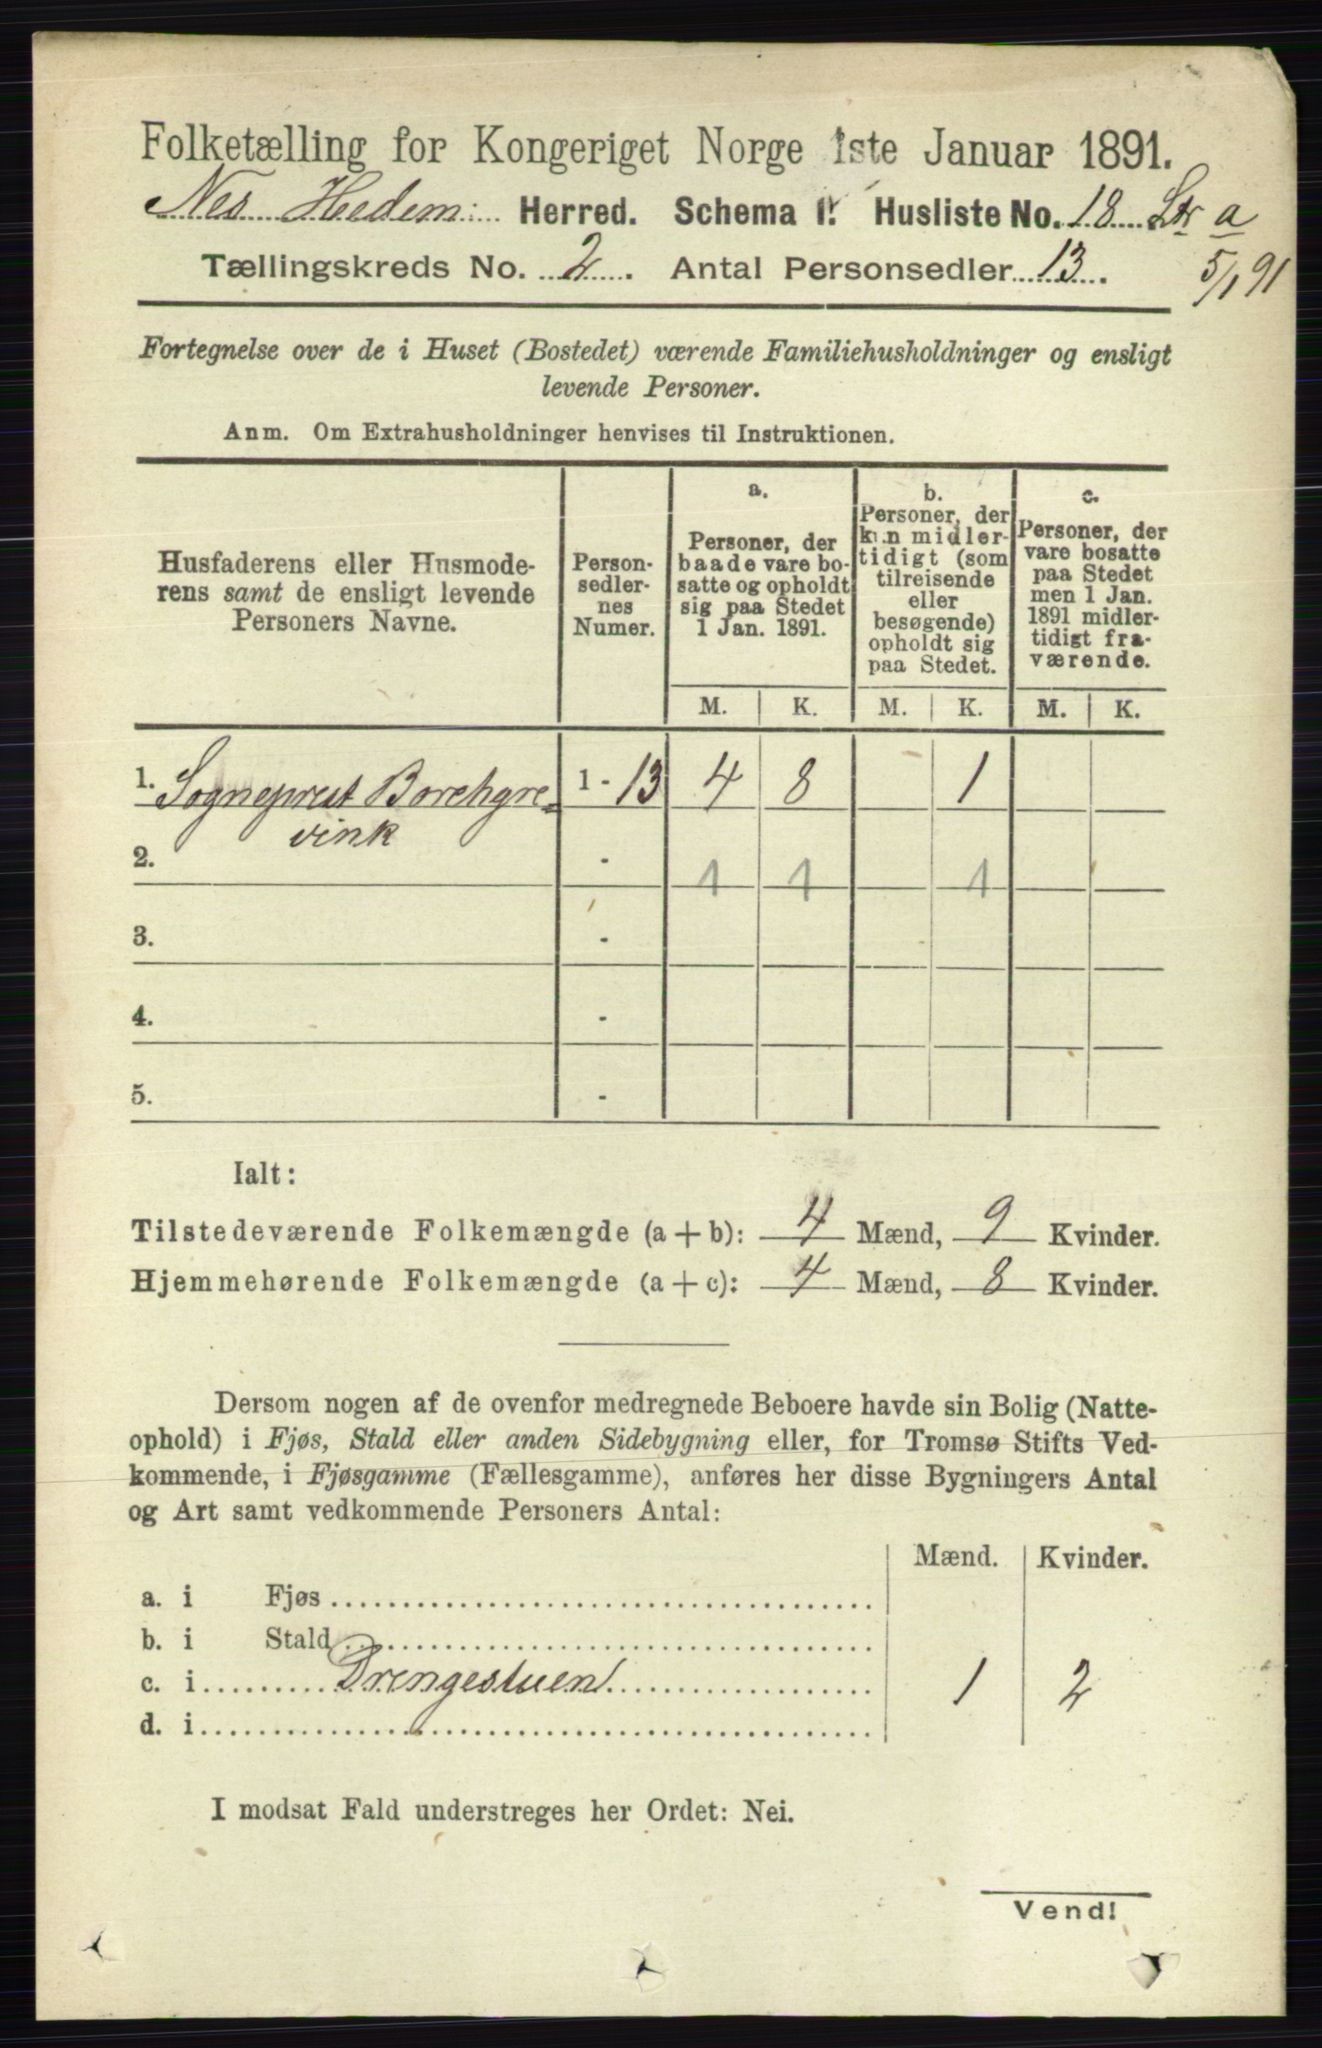 Folketælling for Kongeriget Norge 1ste Januar 1891.
Nes Hedem: Herred. Schema I. Husliste No. 18 Ltr a
Tællingskreds No. 2. Antal Personsedler 13.
5/1 91
Fortegnelse over de i Huset (Bostedet) værende Familiehusholdninger og ensligt
levende Personer.
Anm. Om Extrahusholdninger henvises til Instruktionen.
Husfaderens eller Husmode-
rens samt de ensligt levende
Personers Navne.
Person-
sedler-
nes
Numer.
a.
Personer, der
baade vare bo-
satte og opholdt
sig paa Stedet
1 Jan. 1891.
b.
Personer, der
kun midler-
tidigt (som
tilreisende
eller
besøgende)
opholdt sig
paa Stedet.
c.
Personer, der
vare bosatte
paa Stedet
men 1 Jan.
1891 midler-
tidigt fra-
værende.
M. K. M. K. M. K.
1. Sogneprest Borchgre= 1 - 13 4 8 1
vink
2. - 1 1 1
3. -
4. -
5. -
Ialt:
Tilstedeværende Folkemængde (a + b): 4 Mænd, 9 Kvinder.
Hjemmehørende Folkemængde (a + c): 4 Mænd, 8 Kvinder.
Dersom nogen af de ovenfor medregnede Beboere havde sin Bolig (Natte-
ophold) i Fjøs, Stald eller anden Sidebygning eller, for Tromsø Stifts Ved-
kommende, i Fjøsgamme (Fællesgamme), anføres her disse Bygningers Antal
og Art samt vedkommende Personers Antal:
Mænd. Kvinder.
a. i Fjøs
b. i Stald
c. i Drengestuen 1 2
d. i
I modsat Fald understreges her Ordet: Nei.
Vend!